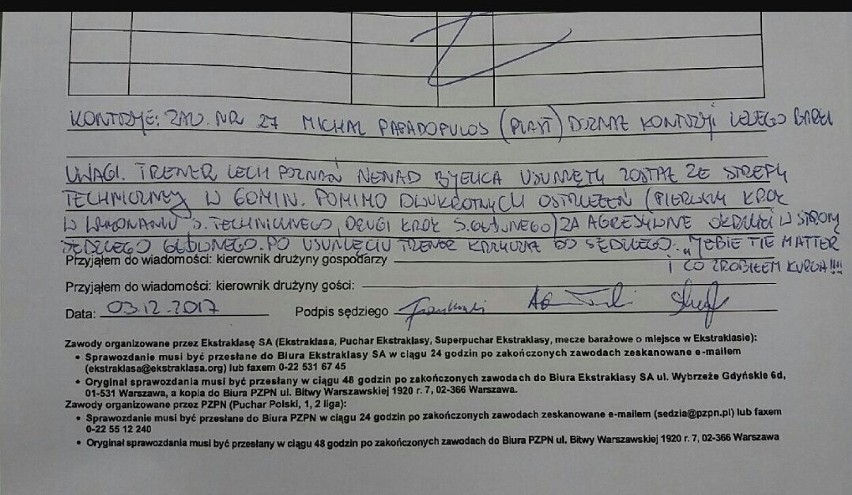 KONTUZJE: ZAW. NR 27 MICHAL PAPADOPULOS (PIAST) DOZNAŁ KONTUZJI LEWEGO BARKU
UWAGI. TRENER LECH POZNAŃ NENAD BJELICA USUNIĘTY ZOSTAŁ ZE STREFY
TECHNICZNEJ W 60MIN. POMIMO DWUKROTNYCH OSTRZEŻEŃ (PIERWSZY KROK
W WYKONANIU S. TECHNICZNEGO, DRUGI KROK S. GŁÓWNEGO) ZA AGRESYWNE OKRZYKI W STRONĘ
SĘDZIEGO GŁÓWNEGO. PO USUNIĘCIU TRENER KRZYCZAŁ DO SĘDZIEGO: „JEBIE TIE MATTER
I CO ZROBIŁEM KURWA!!!!
Przyjąłem do wiadomości: kierownik drużyny gospodarzy
Przyjąłem do wiadomości: kierownik drużyny gości:
Data: 03.12.2017 Podpis sędziego
Zawody organizowane przez Ekstraklasę SA (Ekstraklasa, Puchar Ekstraklasy, Superpuchar Ekstraklasy, mecze barażowe o miejsce w Ekstraklasie):
• Sprawozdanie musi być przesłane do Biura Ekstraklasy SA w ciągu 24 godzin po zakończonych zawodach zeskanowane e-mailem
(ekstraklasa@ekstraklasa.org) lub faxem 0-22 531 67 45
• Oryginał sprawozdania musi być przesłany w ciągu 48 godzin po zakończonych zawodach do Biura Ekstraklasy SA ul. Wybrzeże Gdyńskie 6d,
01-531 Warszawa, a kopia do Biura PZPN ul. Bitwy Warszawskiej 1920 r. 7, 02-366 Warszawa.
Zawody organizowane przez PZPN (Puchar Polski, 1, 2 liga):
• Sprawozdanie musi być przesłane do Biura PZPN w ciągu 24 godzin po zakończonych zawodach zeskanowane e-mailem (sedzia@pzpn.pl) lub faxem
0-22 55 12 240
• Oryginał sprawozdania musi być przesłany w ciągu 48 godzin po zakończonych zawodach do Biura PZPN ul. Bitwy Warszawskiej 1920 r. 7, 02-366 Warszawa